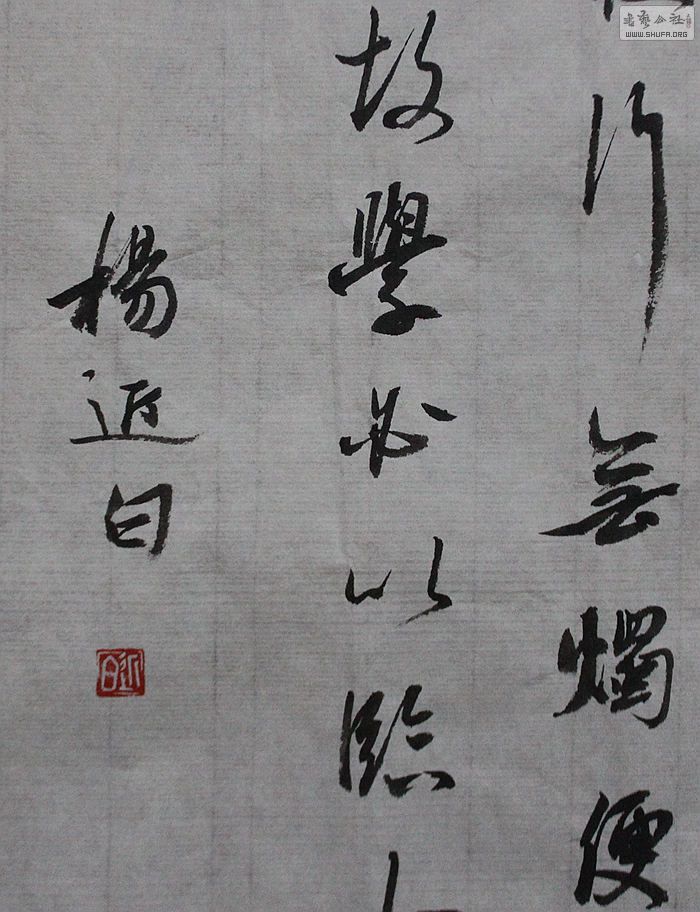 行無燭便
故學必以臨
楊近白
近白
書藝公社
WWW.SHUFA.ORG